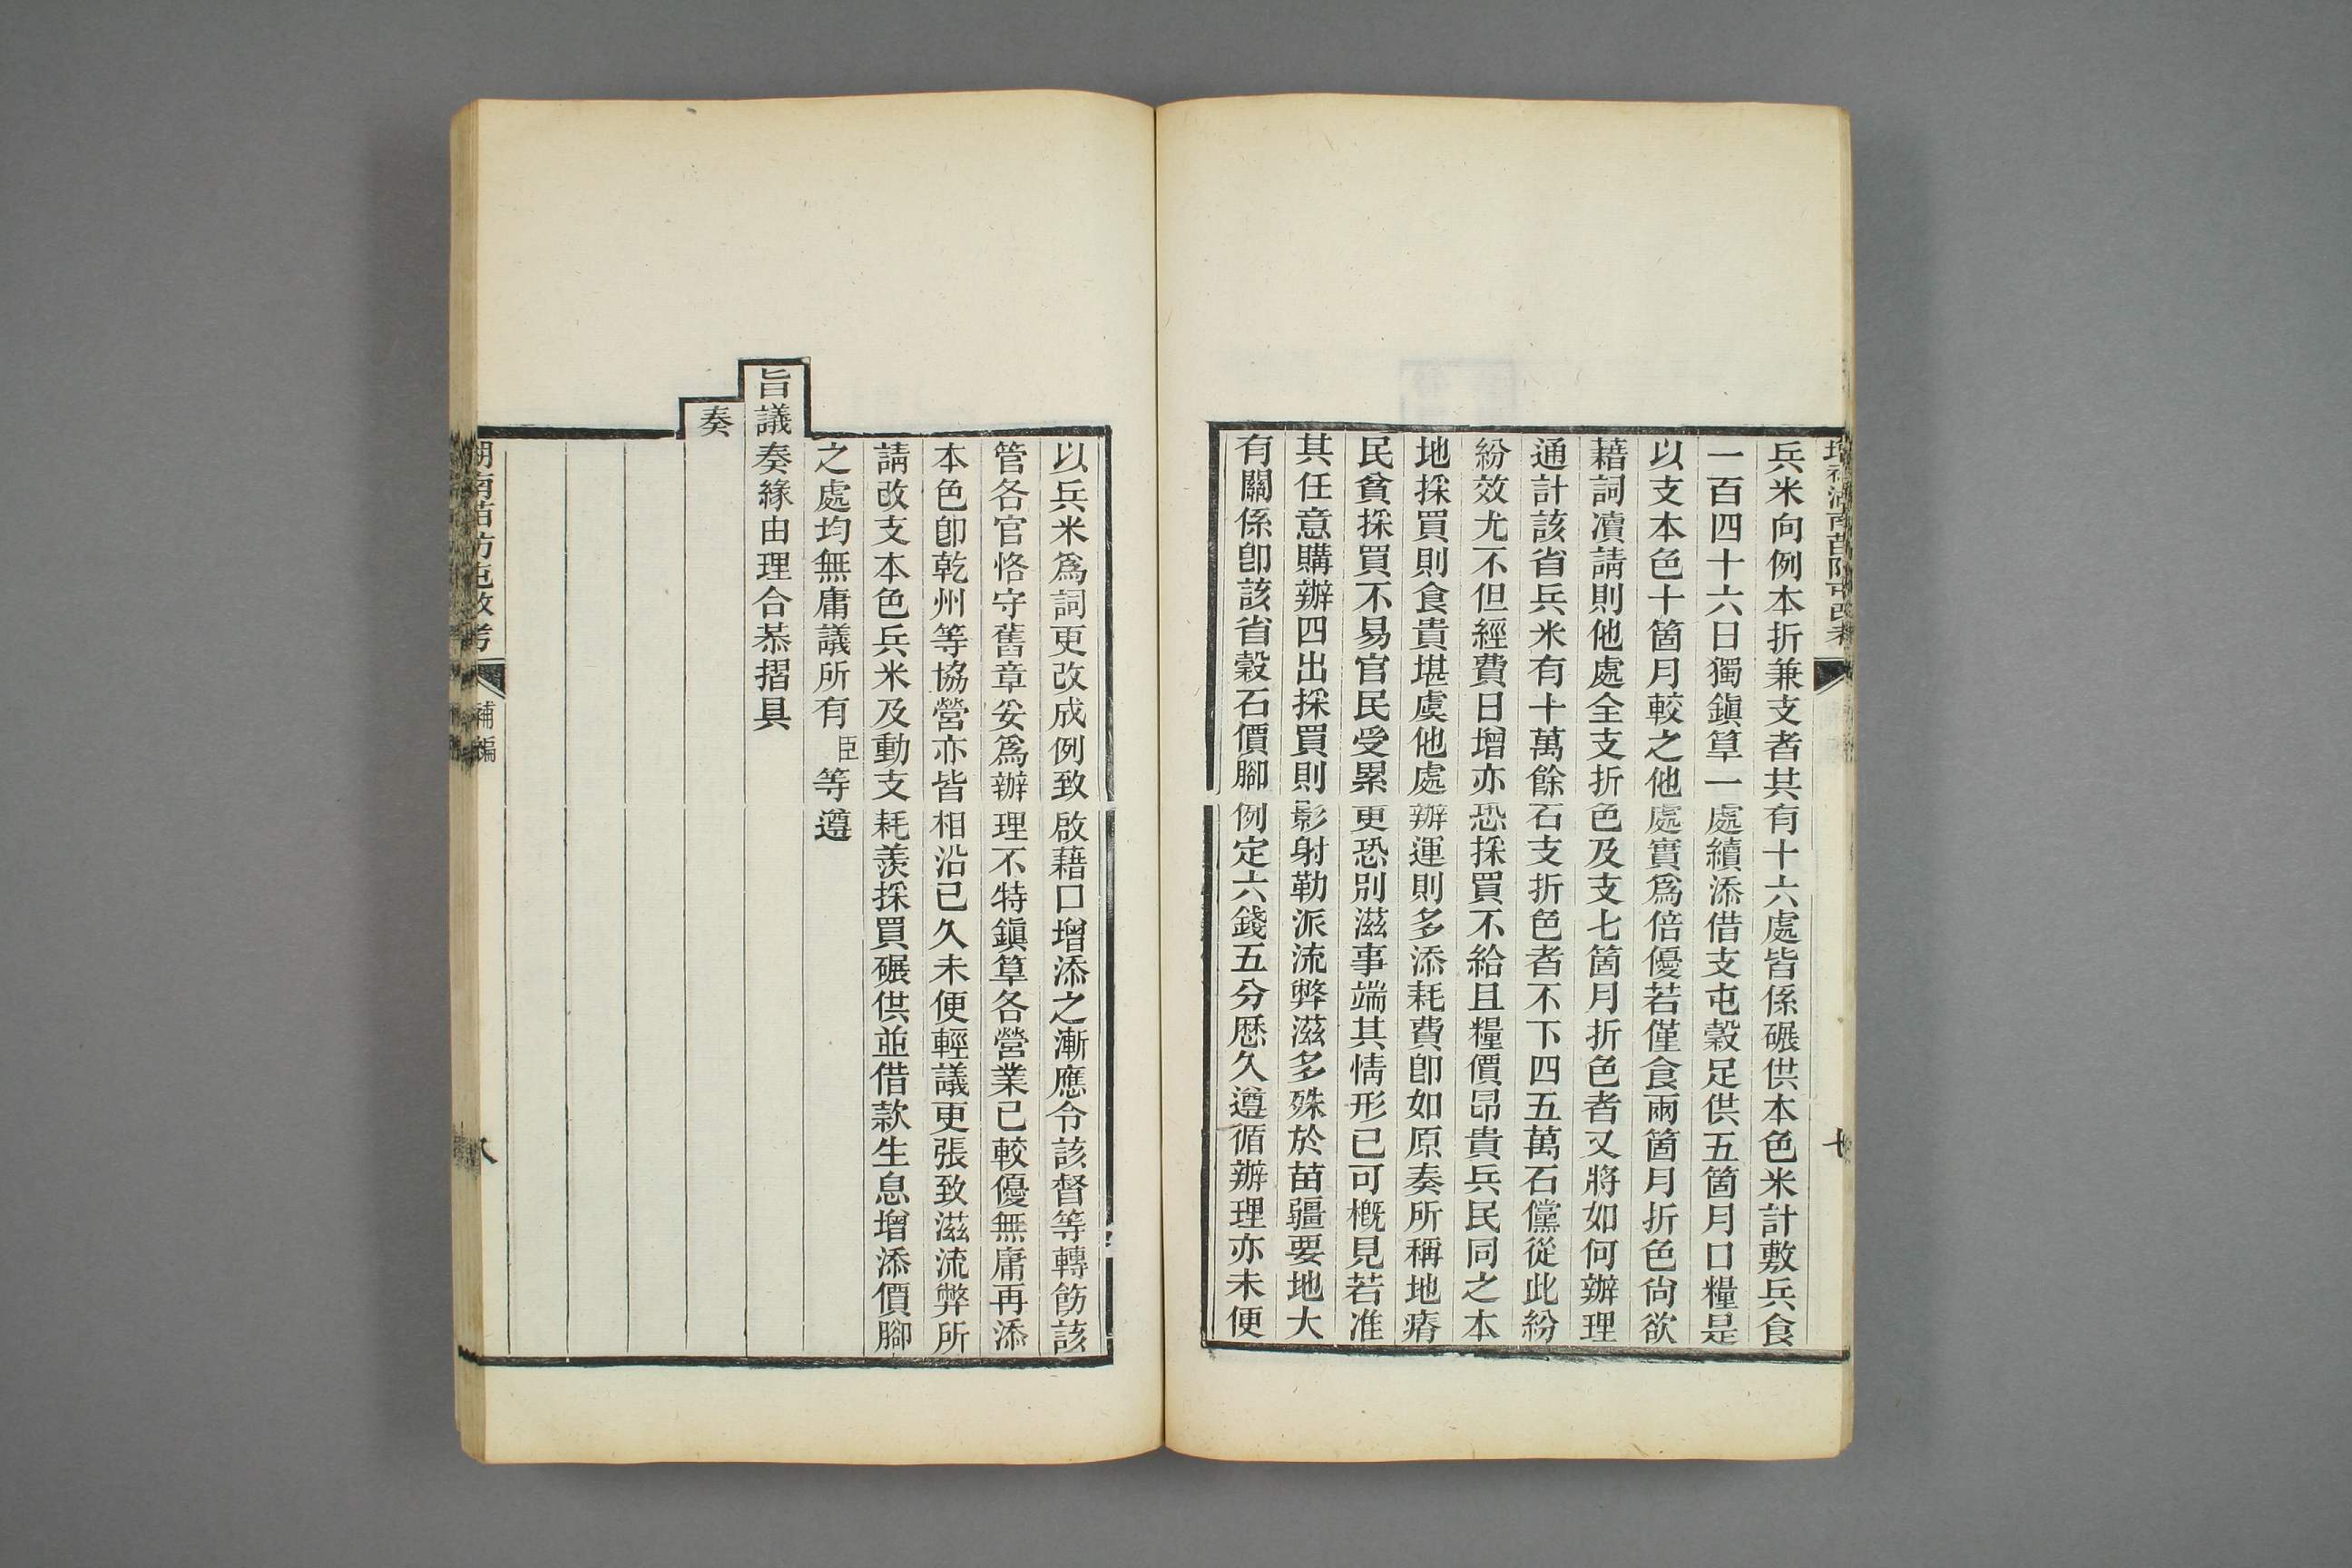 兵米向例本折兼支者共有十六處皆係碾供本色米計敷兵食
一百四十六日獨鎭筸一處續添借支屯榖足供五箇月口糧是
以支本色十箇月較之他處實爲倍優若僅食兩箇月折色尙欲
藉詞瀆請則他處全支折色及支七箇月折色者又將如何辦理
通計該省兵米有十萬餘石支折色者不下四五萬石儻從此紛
紛效尤不但經費日增亦恐採買不給且糧價昂貴兵民同之本
地採買則食貴堪虞他處辦運則多添耗費卽如原奏所稱地瘠
民貧採買不易官民受累更恐別滋事端其情形已可槪見若准
其任意購辦四出採買則影射勒派流弊滋多殊於苗疆要地大
有關係卽該省榖石價腳例定六錢五分歷久遵循辦理亦未便
以兵米爲詞更改成例致啟藉口增添之漸應令該督等轉飭該
管各官恪守舊章妥爲辦理不特鎭筸各營業已較優無庸再添
本色卽乾州等協營亦皆相沿已久未便輕議更張致滋流弊所
請改支本色兵米及動支耗羨採買碾供並借款生息增添價腳
之處均無庸議所有臣等遵
旨議奏緣由理合恭摺具
奏
湖南苗防屯政考
補編
八